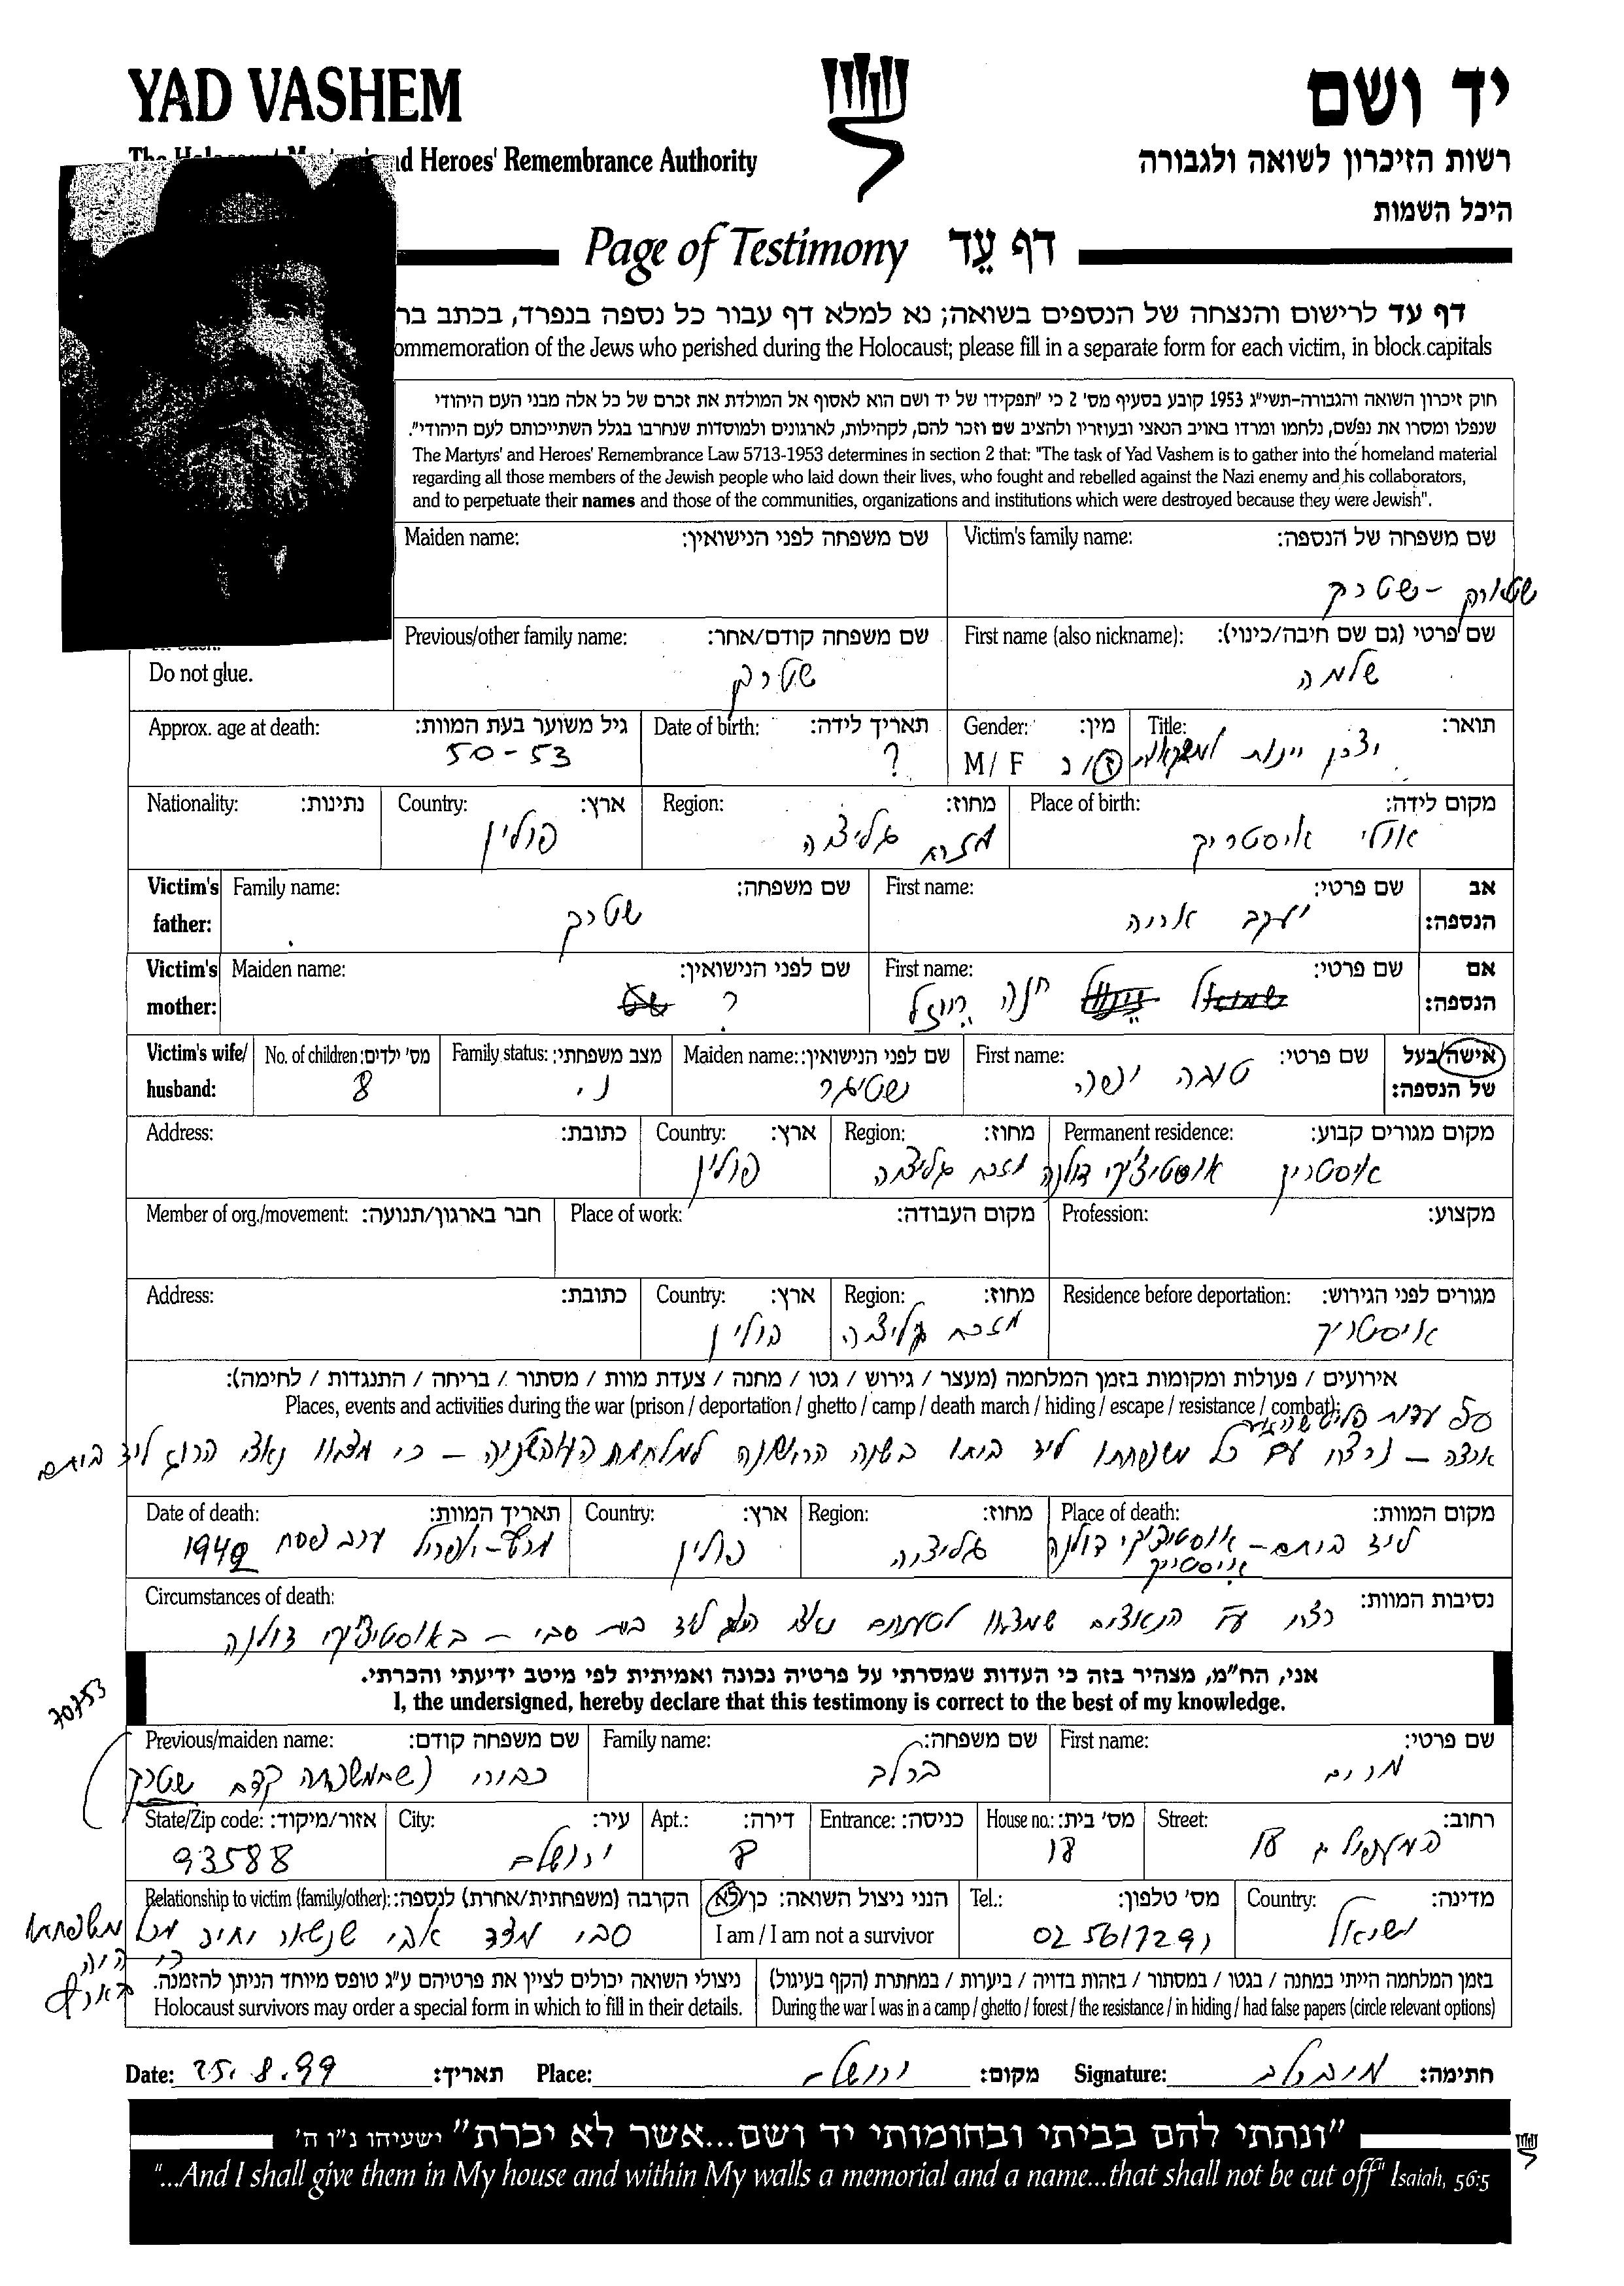 YAD VASHEM
יד ושם
and Heroes' Remembrance Authority
רשות הזיכרון לשואה ולגבורה
היכל השמות
Page of Testimony דף עֵד
דף עד לרישום והנצחה של הנספים בשואה; נא למלא דף עבור כל נספה בנפרד, בכתב
ommemoration of the Jews who perished during the Holocaust; please fill in a separate form for each victim, in block capitals
חוק זיכרון השואה והגבורה-תשי״ג 1953 קובע בסעיף מס' 2 כי "תפקידו של יד ושם הוא לאסוף אל המולדת את זכרם של כל אלה מבני העם היהודי
שנפלו ומסרו את נפשם, נלחמו ומרדו באויב הנאצי ובעוזריו ולהציב שם וזכר להם, לקהילות, לארגונים ולמוסדות שנחרבו בגלל השתייכותם לעם היהודי".
The Martyrs' and Heroes' Remembrance Law 5713-1953 determines in section 2 that: "The task of Yad Vashem is to gather into the homeland material
regarding all those members of the Jewish people who laid down their lives, who fought and rebelled against the Nazi enemy and his collaborators,
and to perpetuate their names and those of the communities, organizations and institutions which were destroyed because they were Jewish".
Victim's family name: שם משפחה של הנספה:
Maiden name: שם משפחה לפני הנישואין:
שטרק
First name (also nickname): שם פרטי (גם שם חיבה/כינוי):
Previous/other family name: שם משפחה קודם/אחר:
שלמה
שטרק
Do not glue.
Title: תואר:
Gender: מין:
Date of birth: תאריך לידה:
Approx. age at death: גיל משוער בעת המוות:
יצרן יינות
M / F ז / נ
?
50-53
Place of birth: מקום לידה:
Region: מחוז:
Country: ארץ:
Nationality: נתינות:
אולי איסטריק
מזרח גליציה
פולין
Victim's father: אב הנספה:
First name: שם פרטי:
Family name: שם משפחה:
יעקב אריה
שטרק
Victim's mother: אם הנספה:
First name: שם פרטי:
Maiden name: שם לפני הנישואין:
חנה רייזל
?
Victim's wife/ husband: אישה/בעל של הנספה:
First name: שם פרטי:
Maiden name: שם לפני הנישואין:
Family status: מצב משפחתי:
No. of children: מס' ילדים:
טובה
נ.
8
Permanent residence: מקום מגורים קבוע:
Region: מחוז:
Country: ארץ:
Address: כתובת:
איסטריק אוסטיצ'קי דולנה
מזרח גליציה
פולין
Profession: מקצוע:
Place of work: מקום העבודה:
Member of org./movement: חבר בארגון/תנועה:
Residence before deportation: מגורים לפני הגירוש:
Region: מחוז:
Country: ארץ:
Address: כתובת:
איסטריק
מזרח גליציה
פולין
אירועים / פעולות ומקומות בזמן המלחמה (מעצר / גירוש / גטו / מחנה / צעדת מוות / מסתור / בריחה / התנגדות / לחימה):
Places, events and activities during the war (prison / deportation / ghetto / camp / death march / hiding / escape / resistance / combat):
עפ עדות פליט
ארצה – נרצח עם כל משפחתו ליד ביתו בשנה הראשונה למלחמת העולם השניה – כי מצאו נאצי הרוג ליד ביתם
Place of death: מקום המוות:
Region: מחוז:
Country: ארץ:
Date of death: תאריך המוות:
ליד ביתם – אוסטיצ'קי דולנה
איסטריק
גליציה
פולין
מרץ-אפריל ערב פסח 1940
Circumstances of death: נסיבות המוות:
נרצח ע״י הנאצים שמצאו לטענתם נאצי הרוג ליד בית סבי – באוסטיצ'קי דולנה
אני, הח״מ, מצהיר בזה כי העדות שמסרתי על פרטיה נכונה ואמיתית לפי מיטב ידיעתי והכרתי.
I, the undersigned, hereby declare that this testimony is correct to the best of my knowledge.
70753
First name: שם פרטי:
Family name: שם משפחה:
Previous/maiden name: שם משפחה קודם:
מרים
ברלב
(שם משפחה קודם שטרק
Street: רחוב:
House no.: מס' בית:
Entrance: כניסה:
Apt.: דירה:
City: עיר:
State/Zip code: אזור/מיקוד:
18
18
8
ירושלים
93588
Country: מדינה:
Tel.: מס' טלפון:
הנני ניצול השואה: כן/לא
I am / I am not a survivor
Relationship to victim (family/other): הקרבה (משפחתית/אחרת) לנספה:
ישראל
02 5617291
סבי מצד אבי שנשאר יחיד מכל משפחתו
כי היה
בארץ
בזמן המלחמה הייתי במחנה / בגטו / במסתור / בזהות בדויה / ביערות / במחתרת (הקף בעיגול)
During the war I was in a camp / ghetto / forest / the resistance / in hiding / had false papers (circle relevant options)
ניצולי השואה יכולים לציין את פרטיהם ע״ג טופס מיוחד הניתן להזמנה.
Holocaust survivors may order a special form in which to fill in their details.
Date: 25.8.99 תאריך: Place: ירושלים מקום: Signature: מ. ברלב חתימה:
"ונתתי להם בביתי ובחומותי יד ושם...אשר לא יכרת" ישעיהו נ״ו ה'
"...And I shall give them in My house and within My walls a memorial and a name...that shall not be cut off" Isaiah, 56:5